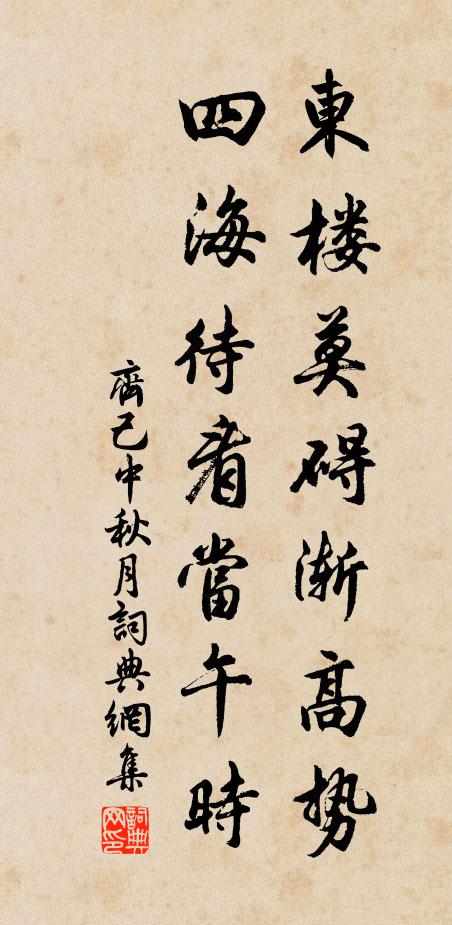 東楼莫碍渐高势
四海待看當午時
齊己中秋月詞典網集
詞典网印